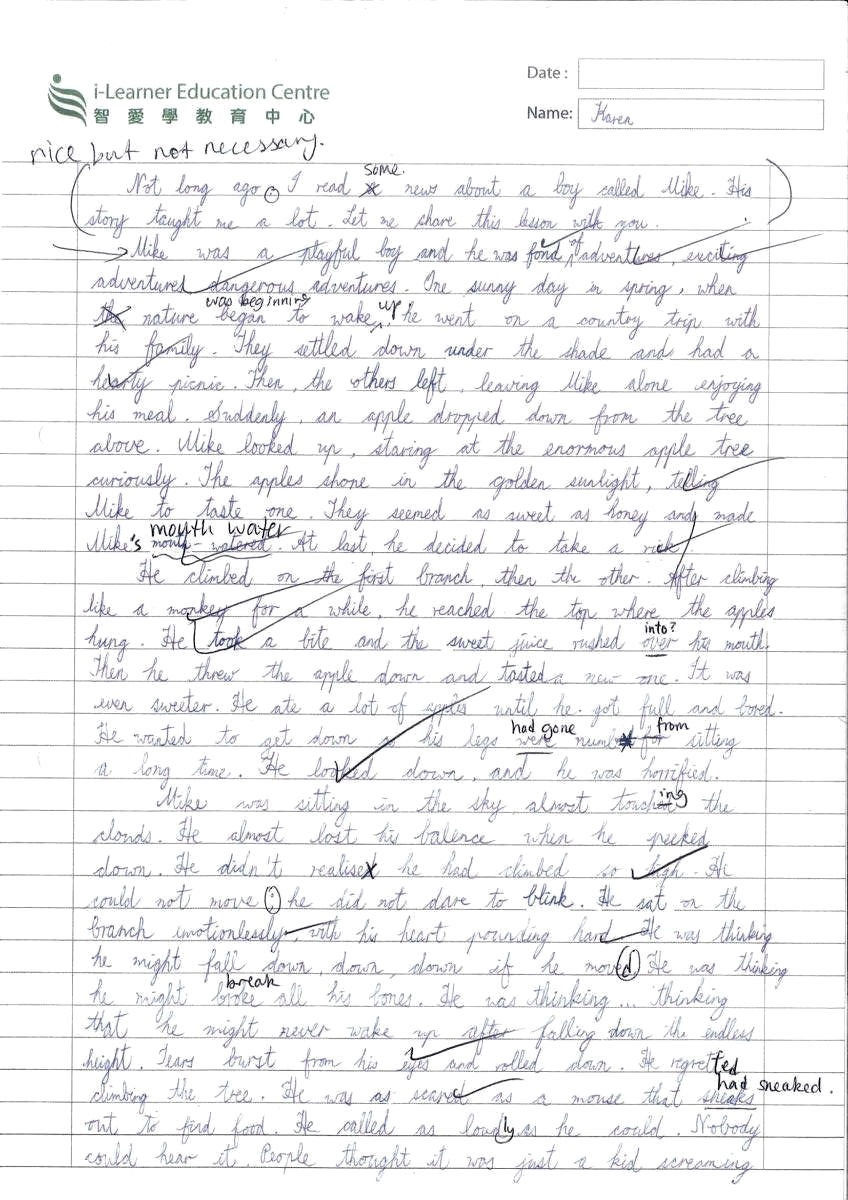 Date :
i-Learner Education Centre
智愛學教育中心
Name: Karen
nice but not necessary.
some.
Not long ago, I read news about a boy called Mike. His
story taught me a lot. Let me share this lesson with you.
Mike was a playful boy and he was fond of adventures, exciting
adventures, dangerous adventures. One sunny day in spring, when
was beginning up
nature began to wake, he went on a country trip with
his family. They settled down under the shade and had a
hearty picnic. Then, the others left, leaving Mike alone enjoying
his meal. Suddenly, an apple dropped down from the tree
above. Mike looked up, staring at the enormous apple tree
curiously. The apples shone in the golden sunlight, telling
Mike to taste one. They seemed as sweet as honey and made
mouth water
Mike's mouth-watered. At last, he decided to take a risk.
He climbed on the first branch, then the other. After climbing
like a monkey for a while, he reached the top where the apples
into?
hung. He took a bite and the sweet juice rushed over his mouth.
Then he threw the apple down and tasted a new one. It was
even sweeter. He ate a lot of apples until he got full and bored.
had gone from
He wanted to get down so his legs were numb for sitting
a long time. He looked down, and he was horrified.
Mike was sitting in the sky, almost touching the
clouds. He almost lost his balence when he peeked
down. He didn't realise he had climbed so high. He
could not move; he did not dare to blink. He sat on the
branch emotionlessly, with his heart pounding hard. He was thinking
he might fall down, down, down if he moved. He was thinking
break
he might broke all his bones. He was thinking... thinking
that he might never wake up after falling down the endless
height. Tears burst from his eyes and rolled down. He regretted
had sneaked.
climbing the tree. He was as scared as a mouse that sneaks
out to find food. He called as loudly as he could. Nobody
could hear it. People thought it was just a kid screaming